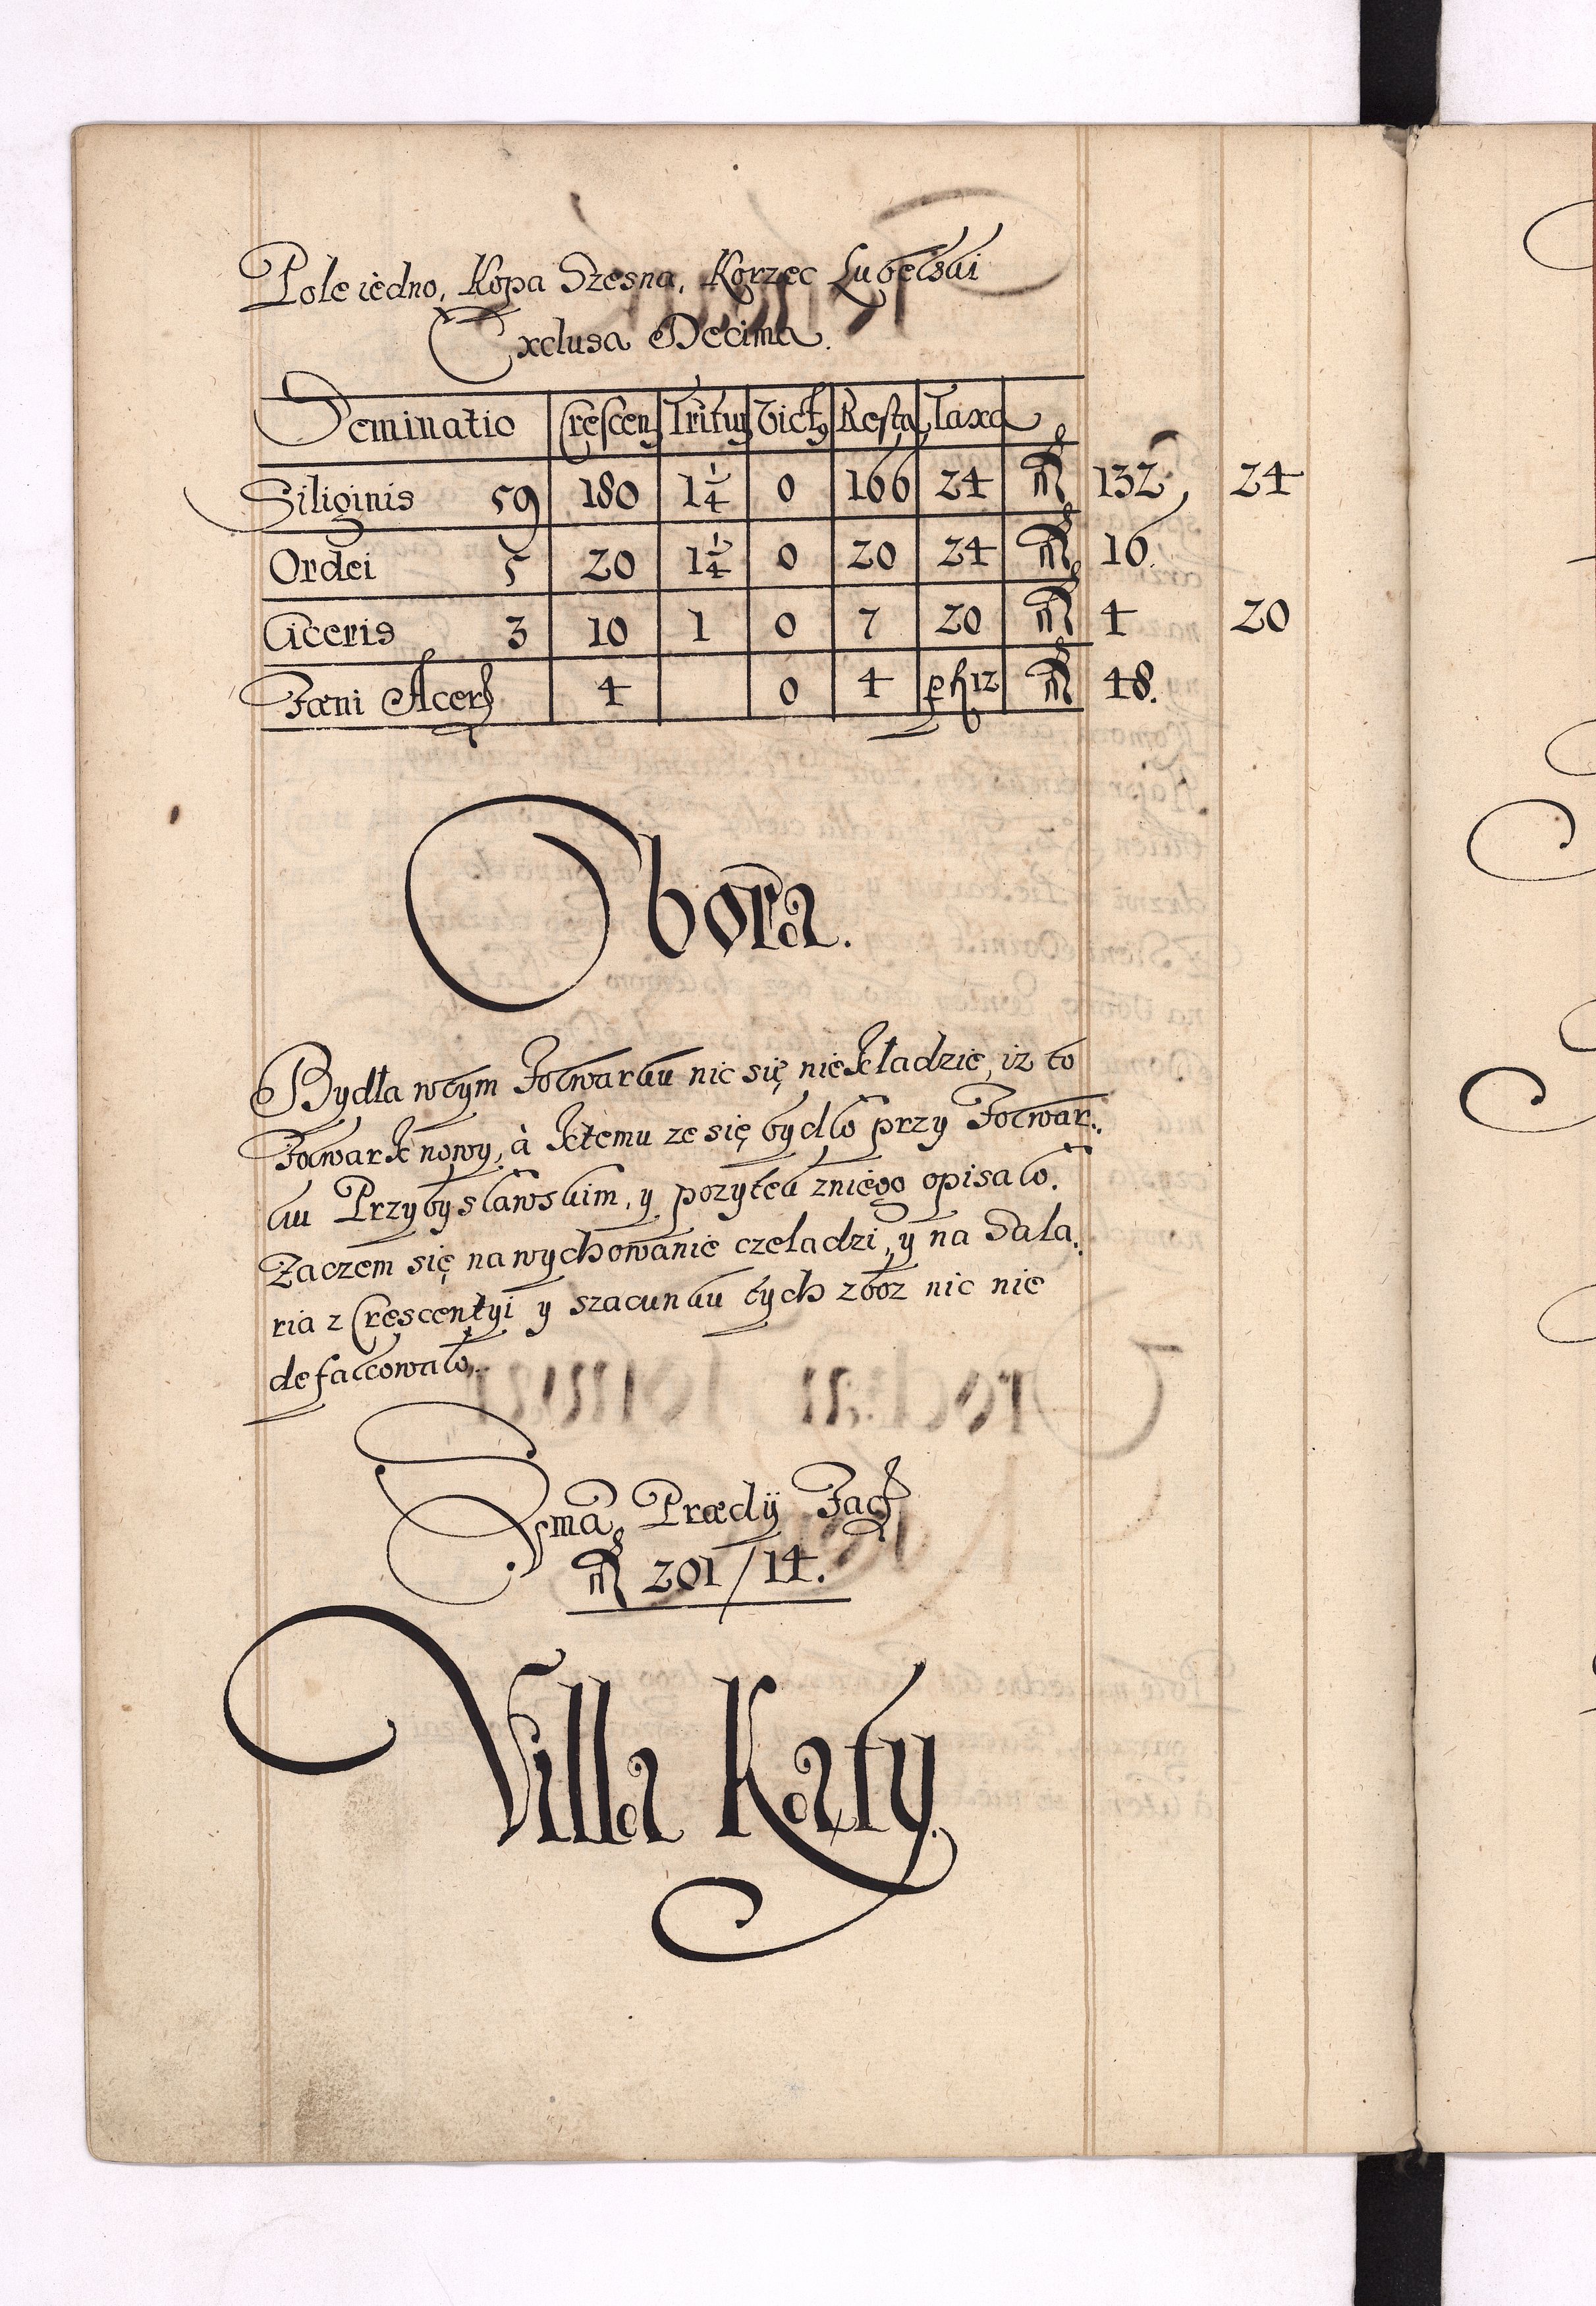 Pole iedno, Kopa Szesna, Korzec Lubelski
Exclusa Decima.
Seminatio Crescen Tritur Vict9 Resta Taxa
Siliginis 59 180 1 1/4 0 166 24 132, 24
Ordei 5 20 1 1/4 0 20 24 16.
Ciceris 3 10 1 0 7 20 4 20
Fæni Acer 4 0 4 12 48.
Obora.
Bydła wtym Folwarku nic się niekładzie, iz to
Folwark nowy, à ktemu ze się bydło przy Folwar.
ku Przybysławskim, y pozytek zniego opisało.
Zaczem się nawychowanie czeladzi, y na Sala.
ria z Crescentyi y szacunku tych zboz nic nie
defalcowało.
Sma Prædij Fac
201/14.
Villa Katy.